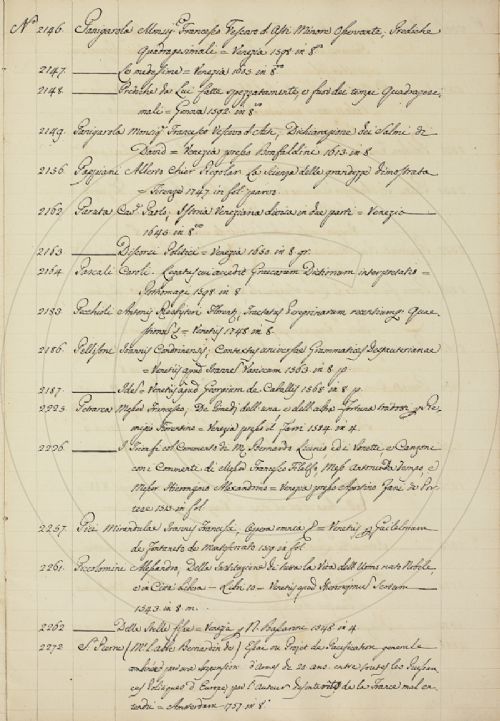 N.º 2146. Panigarola Monsig.r Francesco Vescovo d'Asti Minore Osservante, Prediche
Quadragesimali = Venezia 1598 in 8.º
2147. ——— Le medesime = Venezia 1613 in 8.º
2148. ——— Prediche da Lui fatte spezzatamente, e fuor de tempi Quadragesi
mali = Genova 1592 in 8.º
2149. Panigarola Monsig.r Francesco Vescovo d'Asti, Dichiarazione dei Salmi di
David = Venezia presso Bonfaldino 1613 in 8.
2156 Alberto La scienza delle grandezze dimostrata
= Firenze 1747 in fol. parvo
2162 Paruta Cav.r Paolo, Istoria Veneziana divisa in due parti = Venezia
1645 in 8.º
2163 ——— Discorsi Politici = Venezia 1650 in 8. gr.
2164 Pascali Caroli. Legatus cui accedit Graecarum Dictionum interpretatio =
Rothomagi 1598 in 8
2183 Antonii Tractatus Peregrinarum
= Venetiis 1748 in 8.
2186. Pellisone Joannis Contextus universae Grammatices Despauterianae
= Venetiis apud Joannem 1563 in 8. p.
2187. ——— Idem Venetiis apud Georgium de Caballis 1565 in 8. p.
2223 Petrarca Messer Francesco, De Rimedj dell'una, e dell'altra fortuna Re
migio Fiorentino = Venezia presso il 1584 in 4.
2226. ——— I Trionfi col Commento di M. Bernardo ed i Sonetti, e Canzoni
con Commento di Messer Francesco Filelfo, Mess. Antonio da Tempo e
Messer Hieronymo Alexandrino = Venezia presso Zane de Por
tese 1515 in fol.
2257. Pici Mirandulae Joannis Francisci, Opera omnia = Venetiis Guilelmum
de Fontaneto de Monteferrato 1519 in fol.
2261. Piccolomini Alessandro, Della Instituzione di tutta la Vita dell'Uomo nato Nobile
e in Città Libera – Libri 10 – Venetiis apud Hieronymum Scotum
1543 in 8. m.
2262 ——— Delle Stelle fisse = Venezia 1548 in 4
2272 S.t Pierre (M.r l'Abbé Bernardin de) Essai, ou Projet de Pacification generale
d'Armes de 20. ans entre toutes les Puissan
ces d'Europe par l'Auteur de la France mal en
tendu = Amsterdam 1757 in 8.